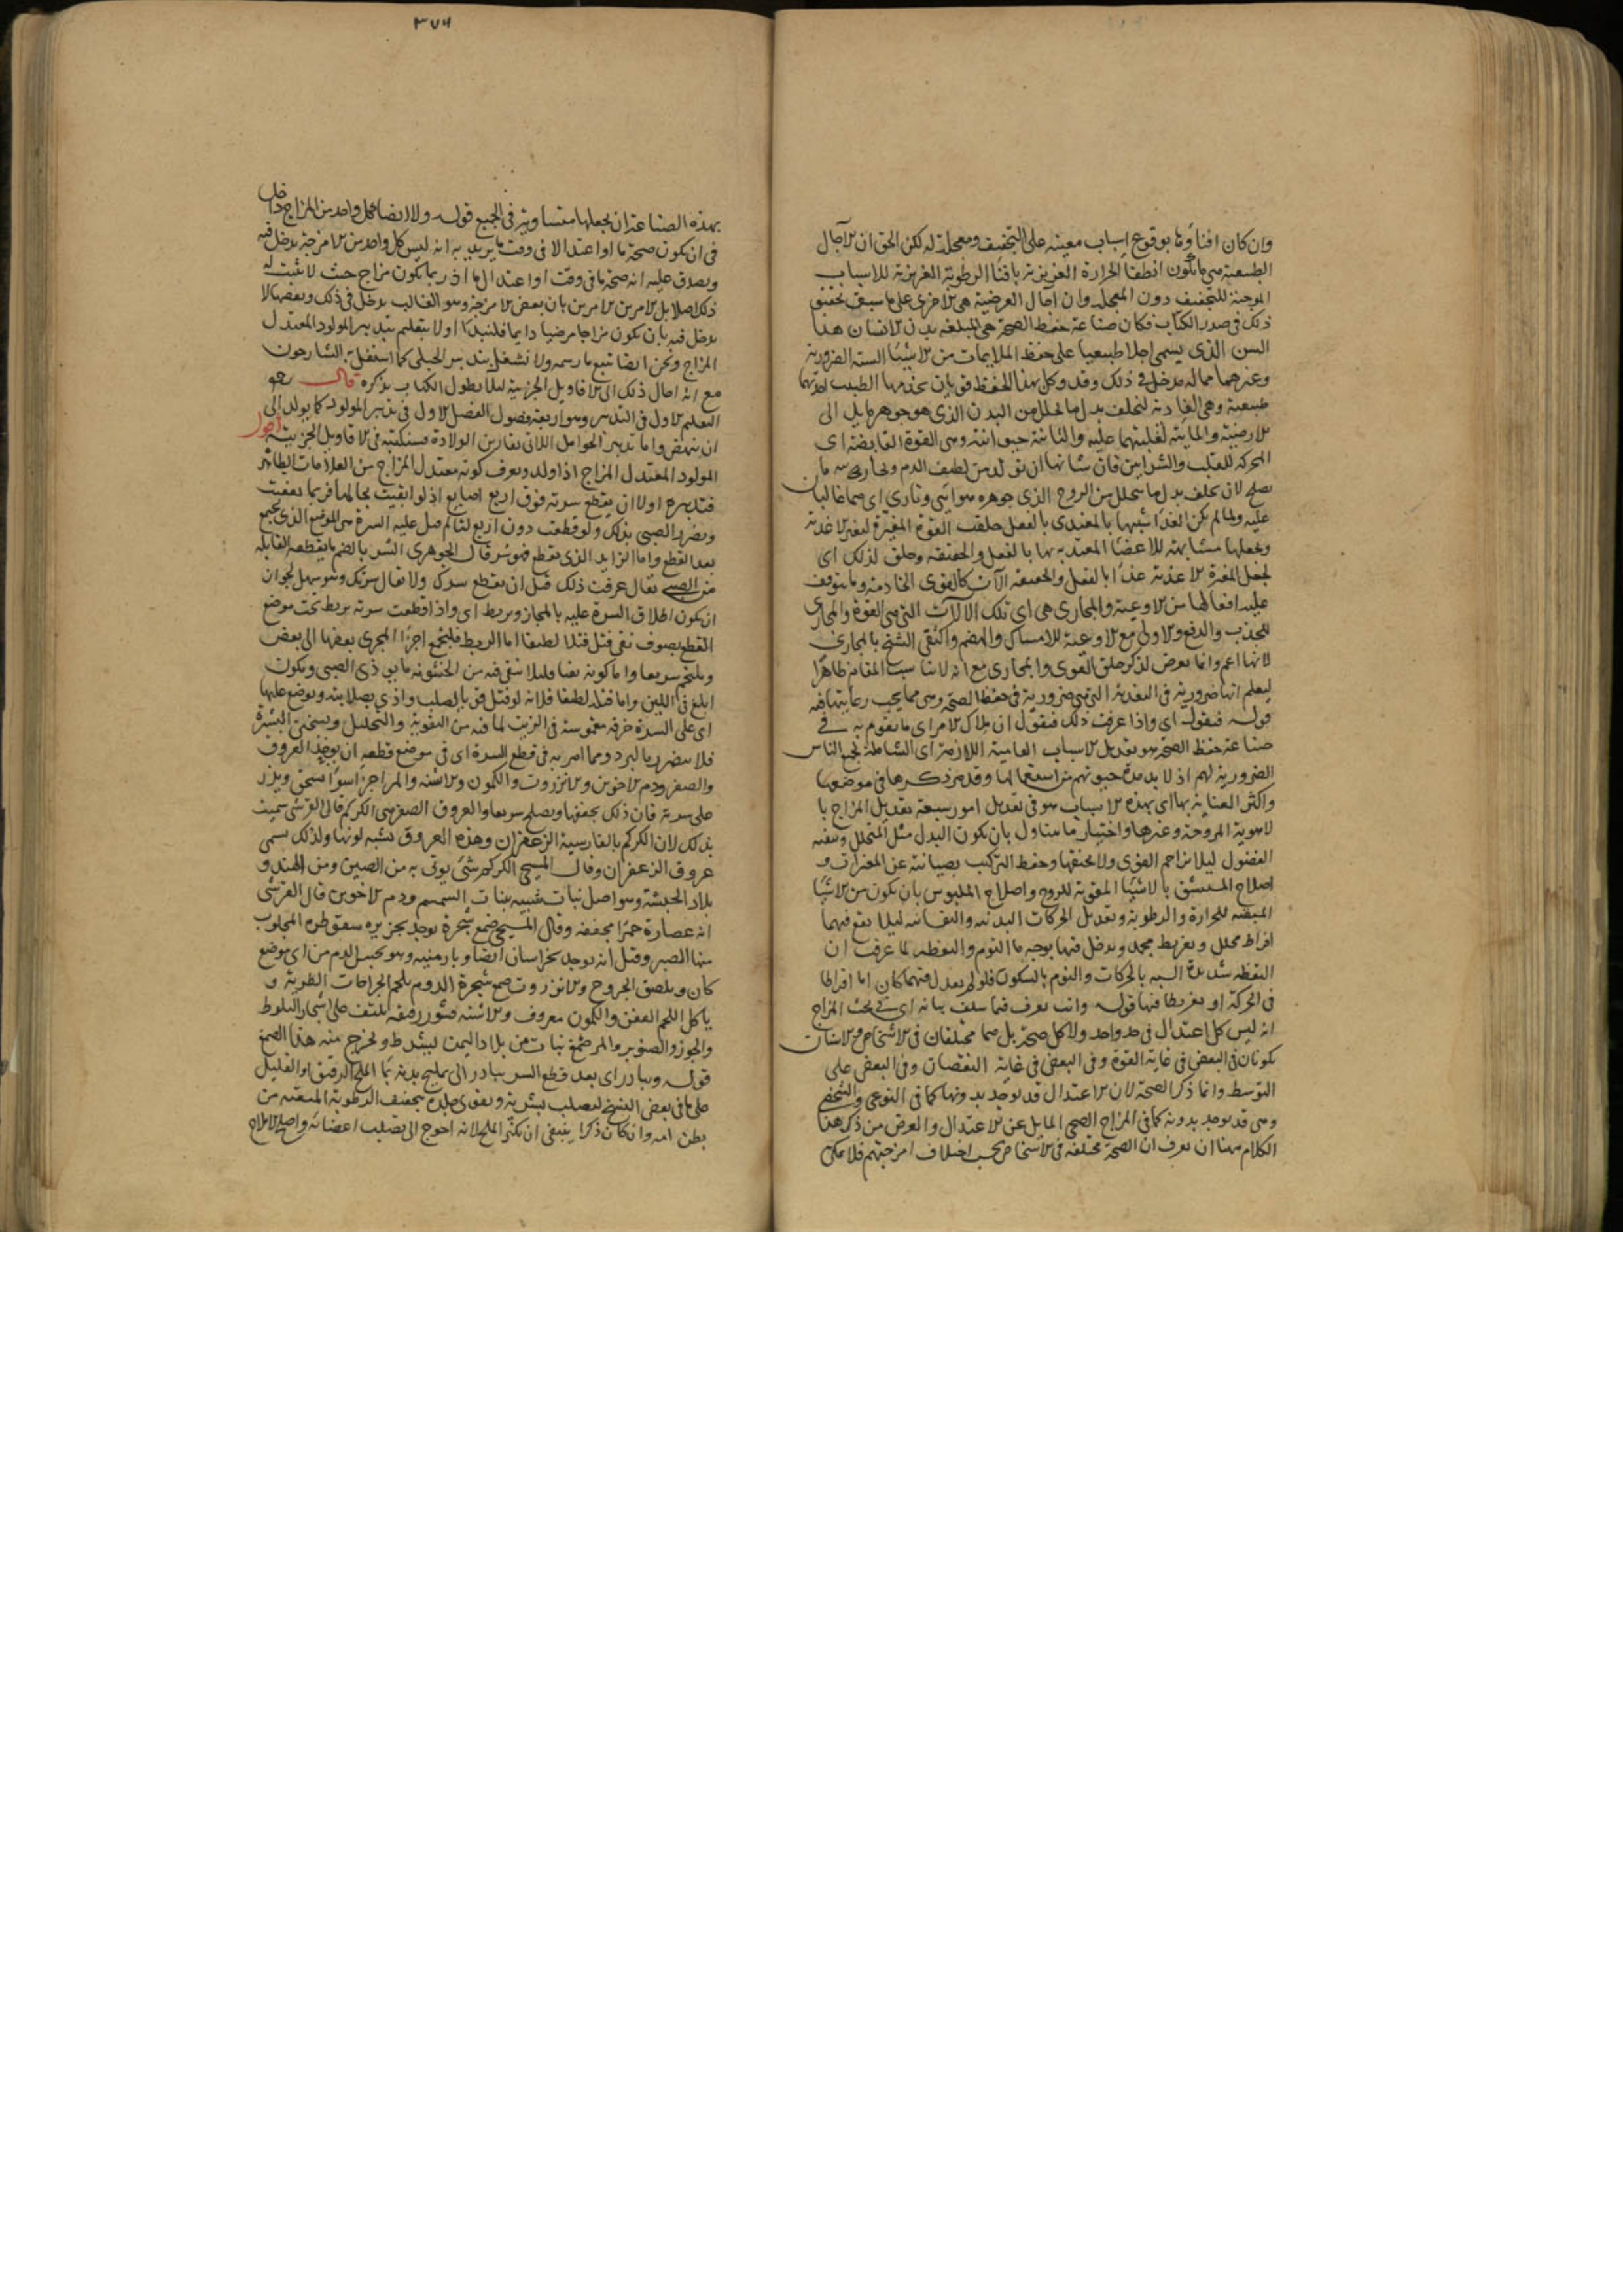 وان كان افناؤها بوقوع اسباب معينه على التجفيف ومعجلة له لكن الحق ان الآجال
الطبيعية هي ما تكون انطفا الحرارة الغريزية بافنا الرطوبة الغريزية للاسباب
الموجبة للتجفيف دون المعجلة وان آجال العرضية هي الاخرى على ما سبق تحقيق
ذلك في صدر الكتاب فكان صناعة حفظ الصحة هي المبلغة بدن الانسان هذا
السن الذي يسمى اجلا طبيعيا على حفظ الملايمات من الاشيا الستة الضرورية
وغيرهما مما له مدخل في ذلك وقد وكل بهذا الحفظ قوتان يخدمها الطبيب احدهما
طبيعية وهي الغاذية لتخلف بدل ما تحلل من البدن الذي هو جوهر مايل الى
الارضية والمائية لغلبتهما عليه والثانية حيوانية وهي القوة النابضة اى
المحركة للقلب والشرايين فان شانها ان تولد من لطيف الدم وبخاريته ما
يصلح لان يخلف بدل ما يتحلل من الروح الذي جوهره هوائي وناري اى هما غالبان
عليه ولما لم يكن الغذا شبيها بالمغتذى بالفعل خلقت القوة المغيرة لتغير الاغذية
وتجعلها مشابهة للاعضا المغتذية بها بالفعل والحقيقة وخلق لذلك اى
لجعل المغيرة الاغذية غذا بالفعل والحقيقة الآت كالقوى الخادمة وما يتوقف
عليه افعالها من الاوعية والمجاري هي اى تلك الالات التي هي القوة والمجاري
للجذب والدفع والاولى مع الاوعية للامساك والهضم واكتفى الشيخ بالمجاري
لانها اعم وانما تعرض لذكر خلق القوى والمجاري مع انه لا يناسب المقام ظاهرا
ليعلم انها ضرورية في التغذية التي هي ضرورية في حفظ الصحة وهي مما يجب رعايتها فيه
قوله فنقول اى واذا عرفت ذلك فنقول ان ملاك الامر اى ما يقوم به في
صناعة حفظ الصحة هو تعديل الاسباب العامية اللازمة اى الشاملة لجميع الناس
الضرورية لهم اذ لا بد مدة حيوتهم من استعمالها وقد مر ذكرها في موضعها
واكثر العناية بها اى بهذه الاسباب هو في تعديل امور سبعة تعديل المزاج با
لاهوية المروحة وغيرها واختيار ما يتناول بان يكون البدل مثل المتحلل وتنقية
الفضول ليلا تزاحم القوى ولا تخنقها وحفظ التركيب بصيانته عن المضرات و
اصلاح المستنشق بالاشيا المقوية للروح واصلاح الملبوس بان يكون من الاشيا
المبقية للحرارة والرطوبة وتعديل الحركات البدنية والنفسانية ليلا يقع فيهما
افراط محلل وتفريط مجمد ويدخل فيها بوجه ما النوم واليقظة لما عرفت ان
اليقظة شديدة الشبه بالحركات والنوم بالسكون فلو لم يعدل فيهما كان اما افراطا
في الحركة او تفريطا فيها قوله وانت تعرف فيما سلف بيانه اى في بحث المزاج
انه ليس كل اعتدال في حد واحد ولا كل صحة بل هما مختلفان في الاشخاص والاسنان
يكونان في البعض في غاية القوة وفي البعض في غاية النقصان وفي البعض على
التوسط وانما ذكر الصحة لان الاعتدال قد يوجد بدونها كما في النوعي والشخصي
وهي قد توجد بدونه كما في المزاج الصحي المايل عن الاعتدال والغرض من ذكر هذا
الكلام ههنا ان يعرف ان الصحة مختلفة في الاشخاص بحسب اختلاف امزجتهم فلا يمكن
٣٧٦
بهذه الصناعة ان يجعلها متساوية في الجميع قوله ولا ايضا كل واحد من المزاج داخل
في ان يكون صحة ما او اعتدالا في وقت ما يريد به انه ليس كل واحد من الامزجة يدخل فيه
ويصدق عليه انه صحة ما في وقت او اعتدال ما اذ ربما يكون مزاج حيث لا يثبت له
ذلك اصلا بل الامر بين الامرين بان بعض الامزجة وهو الغالب يدخل في ذلك وبعضها لا
يدخل فيه بان يكون مزاجا مرضيا دايما فلنبدأ اولا بتعليم تدبير المولود المعتدل
المزاج ونحن ايضا نتبع ما رسمه ولا نشتغل بتدبير الحبلى كما اشتغل به الشارحون
مع انه احال ذلك الى الاقاويل الجزئية ليلا يطول الكتاب بذكره قال رحمه
التعليم الاول في التدبير وهو اربعة فصول الفصل الاول في تدبير المولود كما يولد الى
ان ينهض واما تدبير الحوامل اللاتي يقاربن الولادة فسنكتبه في الاقاويل الجزئية اقول
المولود المعتدل المزاج اذا ولد ويعرف كونه معتدل المزاج من العلامات الظاهر
فتدبيره اولا ان يقطع سرته فوق اربع اصابع اذ لو ابقيت بحالها فربما تعفنت
وتضرر الصبي بذلك ولو قطعت دون اربع لتالم قبل عليه السرة هي الموضع الذي يجمع
بعد القطع واما الزايد الذي يقطع فهو سر قال الجوهري السر بالضم ما يقطعه القابلة
من الصبي يقال عرفت ذلك قبل ان يقطع سرك ولا يقال سرتك وهو سهل لجواز
ان يكون اطلاق السرة عليه بالمجاز ويربط اى واذا قطعت سرته يربط تحت موضع
القطع بصوف نقي فتل فتلا لطيفا اما الربط فليجتمع اجزا المجرى بعضها الى بعض
ويلتحم سريعا واما كونه نقيا فليلا يبقى فيه من الخشونة ما يوذي الصبي ويكون
ابلغ في اللين واما فتله لطيفا فلانه لو فتل فتلا قويا لصلب واذى بصلابته ويوضع عليها
اى على السرة خرقة مغموسة في الزيت لما فيه من التقوية والتحليل وتسخين البشرة
فلا يتضرر بالبرد ومما امر به في قطع السرة اى في موضع قطعه ان يوخذ العروق
والصفر ودم الاخوين والانزروت والكمون والاشنه والمر اجزا سوا يسحق ويذر
على سرته فان ذلك يجففها ويصلح سريعا والعروق الصفر هي الكركم قال القرشي سميت
بذلك لان الكركم بالفارسية الزعفران وهذه العروق تشبه لونها ولذلك يسمى
عروق الزعفران وقال المسيحي الكركم شئ يوتى به من الصين ومن الهند و
بلاد الحبشة وهو اصل نبات شبيه بنبات السمسم ودم الاخوين قال القرشي
انه عصارة حمرا مجففة وقال المسيحي صمغ شجرة توجد بجزيره سقوطره المجلوب
منها الصبر وقيل انه يوجد بخراسان ايضا وبارمنيه وهو يحبس الدم من اى موضع
كان ويلصق الجروح والانزروت صمغ شجرة الدوم يلحم الجراحات الطرية و
ياكل اللحم العفن والكمون معروف والاشنه قشور رقيقه تلتف على اشجار البلوط
والجوز والصنوبر والمر صمغ نبات من بلاد اليمن يشرط ويخرج منه هذا الصمغ
قوله ويبادر اى بعد قطع السر يبادر الى تمليح بدنه بما الملح الرقيق او القليل
على ما في بعض النسخ لتصلب بشرته ويقوى جلده بتجفيف الرطوبة المتعلقه من
بطن امه وان كان ذكرا ينبغي ان يكثر الملح لانه احوج الى تصليب اعضائه واصلح الاملاح